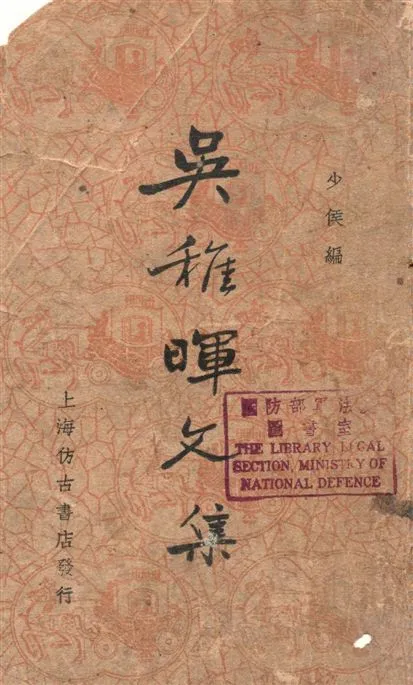 少侯編
吳稚暉文集
上海仿古書店發行
國防部軍法
圖書室
THE LIBRARY LEGAL
SECTION, MINISTRY OF
NATIONAL DEFENCE